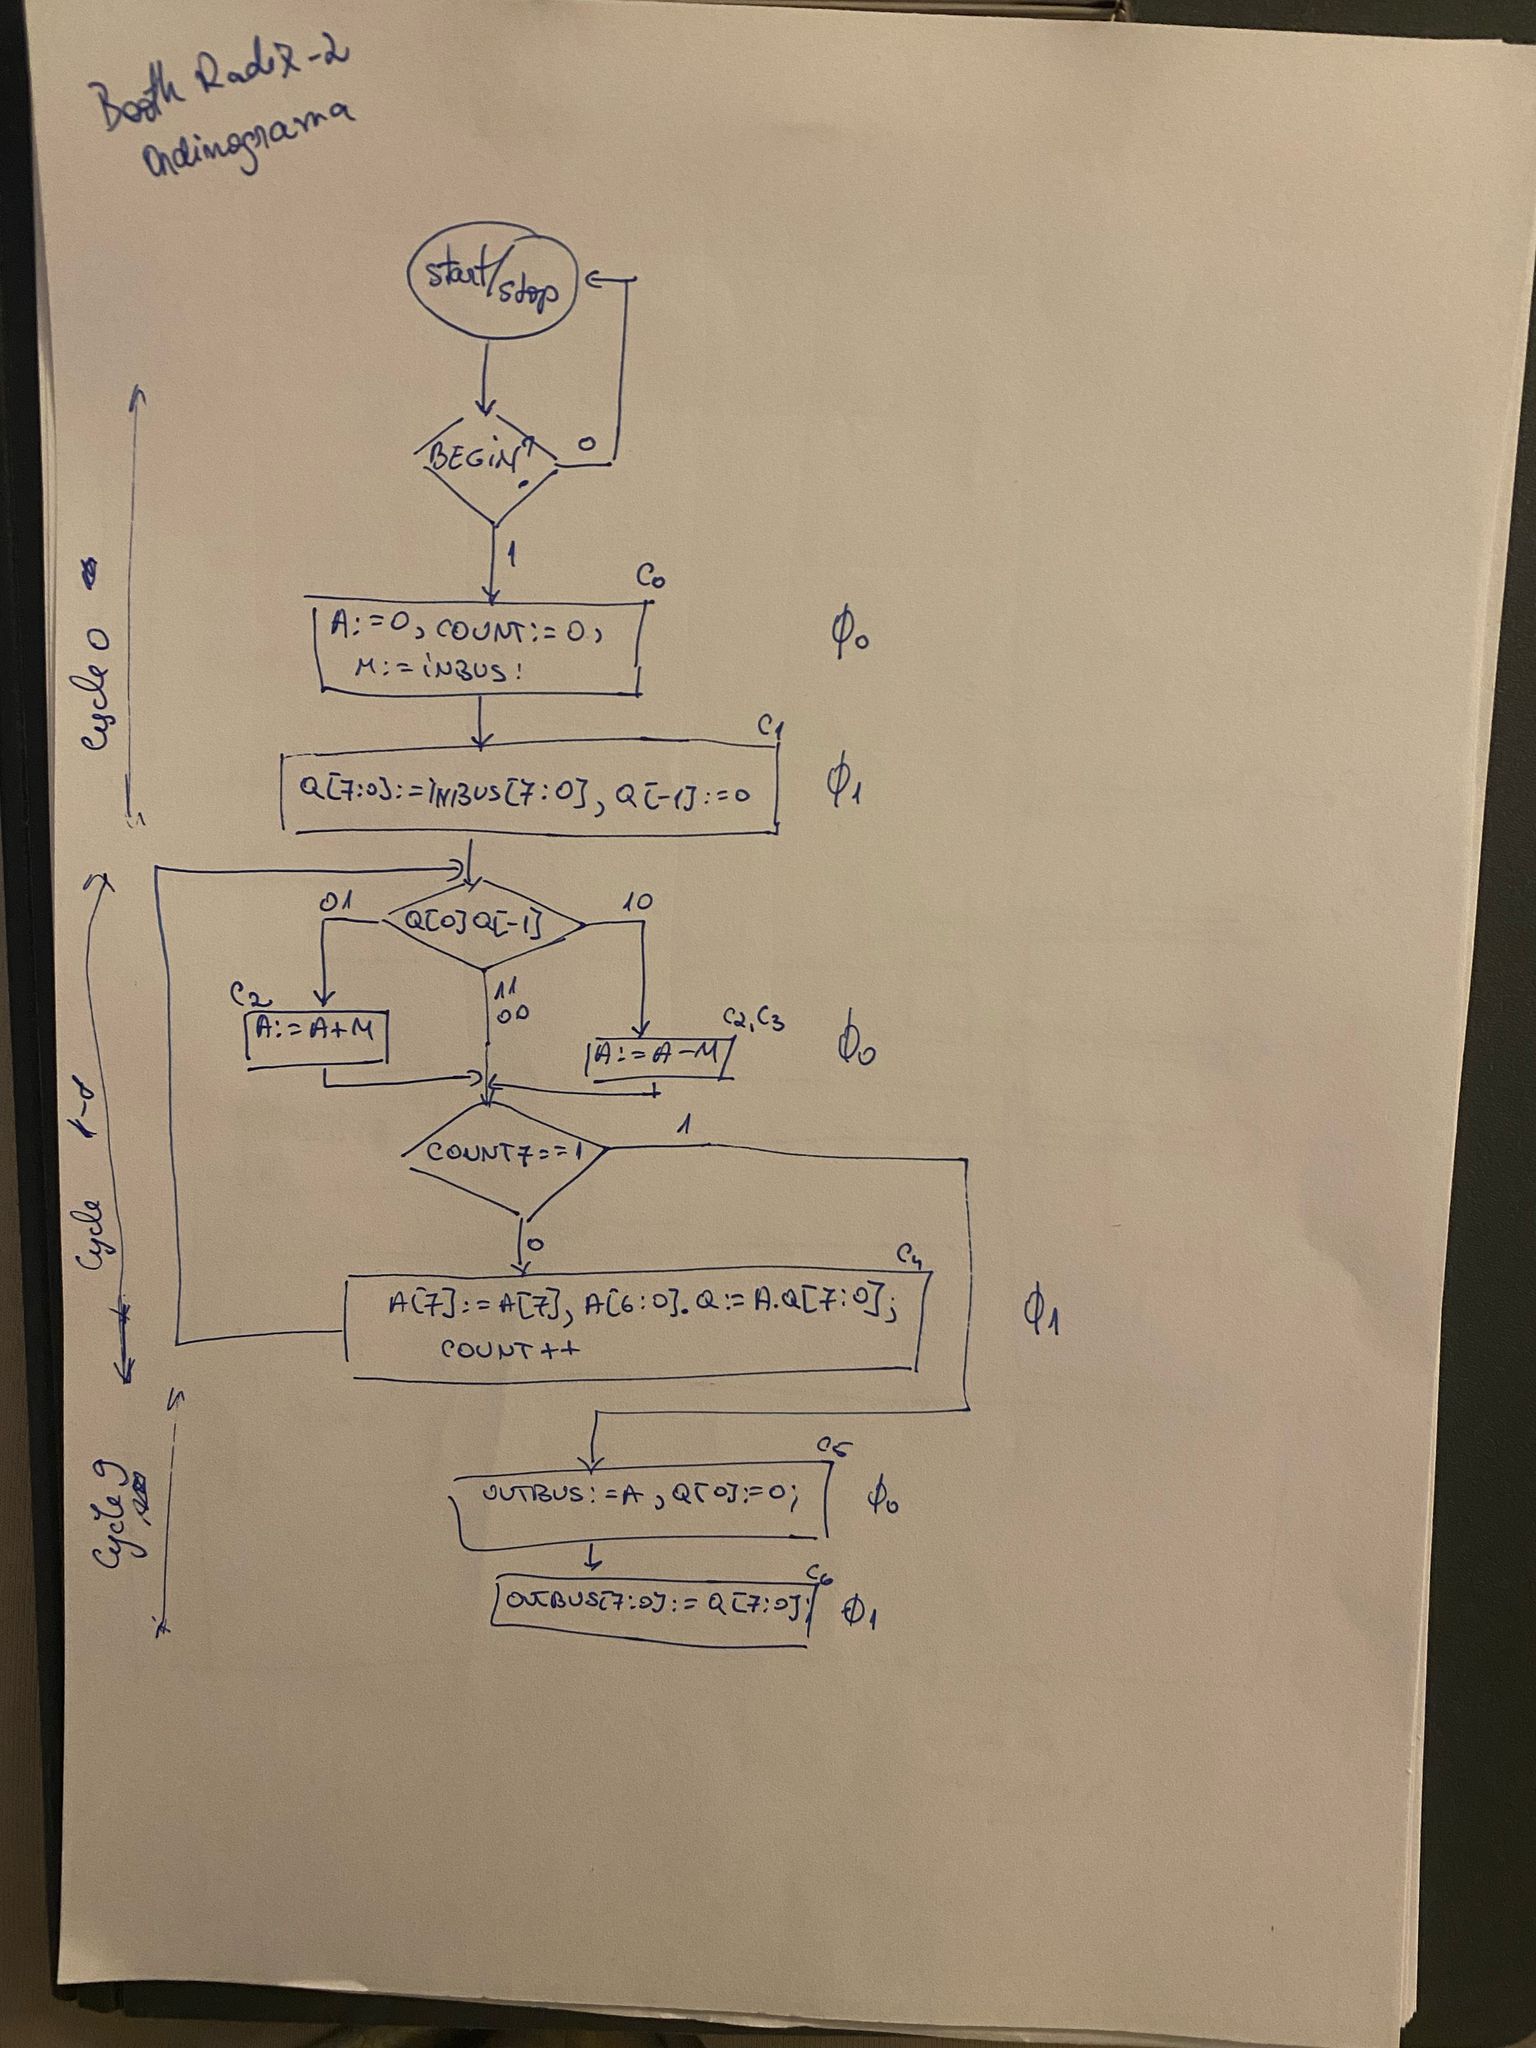 Booth Radix-2
Ordinograma
start/stop
BEGIN?
0
1
Cycle 0
C0
A:=0, COUNT:=0,
M:=INBUS;
ϕ0
C1
Q[7:0]:=INBUS[7:0], Q[-1]:=0
ϕ1
01
Q[0]Q[-1]
10
11
00
C2
A:=A+M
C2, C3
A:=A-M
ϕ0
Cycle 1-8
COUNT7==1
1
0
C4
A[7]:=A[7], A[6:0].Q:=A.Q[7:0];
COUNT++
ϕ1
Cycle 9
C5
OUTBUS:=A, Q[0]:=0;
ϕ0
C6
OUTBUS[7:0]:=Q[7:0];
ϕ1